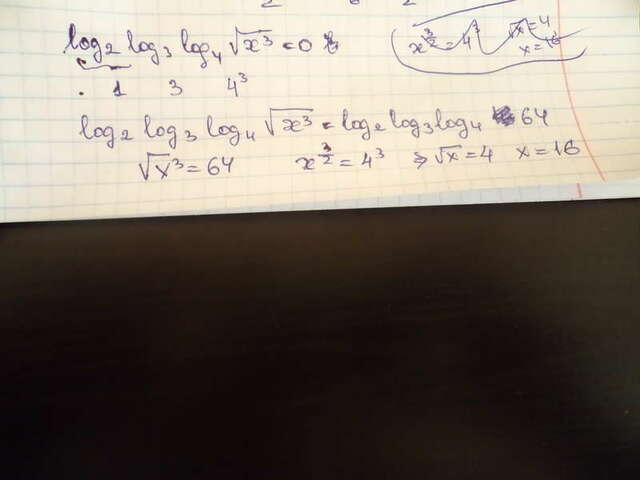 log₂ log₃ log₄ √x³ = 0
x^(3/2) = 4³ √x = 4
x = 16
1 3 4³
log₂ log₃ log₄ √x³ = log₂ log₃ log₄ 64
√x³ = 64 x^(3/2) = 4³ ⇒ √x = 4 x = 16